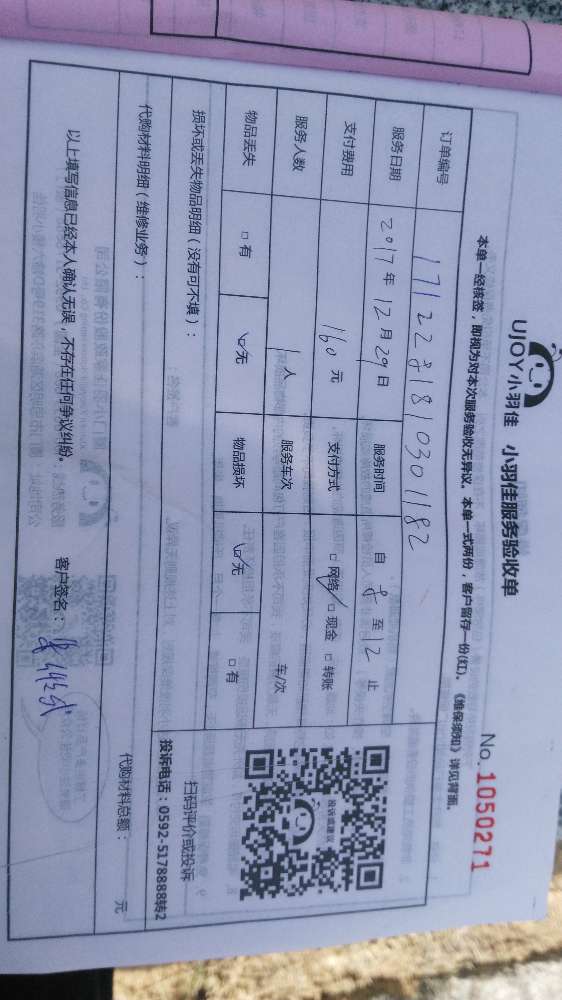 UJOY小羽佳 小羽佳服务验收单
No. 1050271
本单一经核签，即视为对本次服务验收无异议。本单一式两份，客户留存一份(红)。《维保须知》详见背面。
订单编号 171228181030 1182
服务日期 2017年12月29日 服务时间 自 8 至 12 止
支付费用 160元 支付方式 □网络 □现金 □转账
服务人数 1人 服务车次 车/次
物品丢失 □有 □无 物品损坏 □无 □有
损坏或丢失物品明细（没有可不填）：
代购材料明细（维修业务）：
代购材料总额： 元
以上填写信息已经本人确认无误，不存在任何争议纠纷。 客户签名：
投诉或建议
扫码评价或投诉
投诉电话：0592-5178888转2